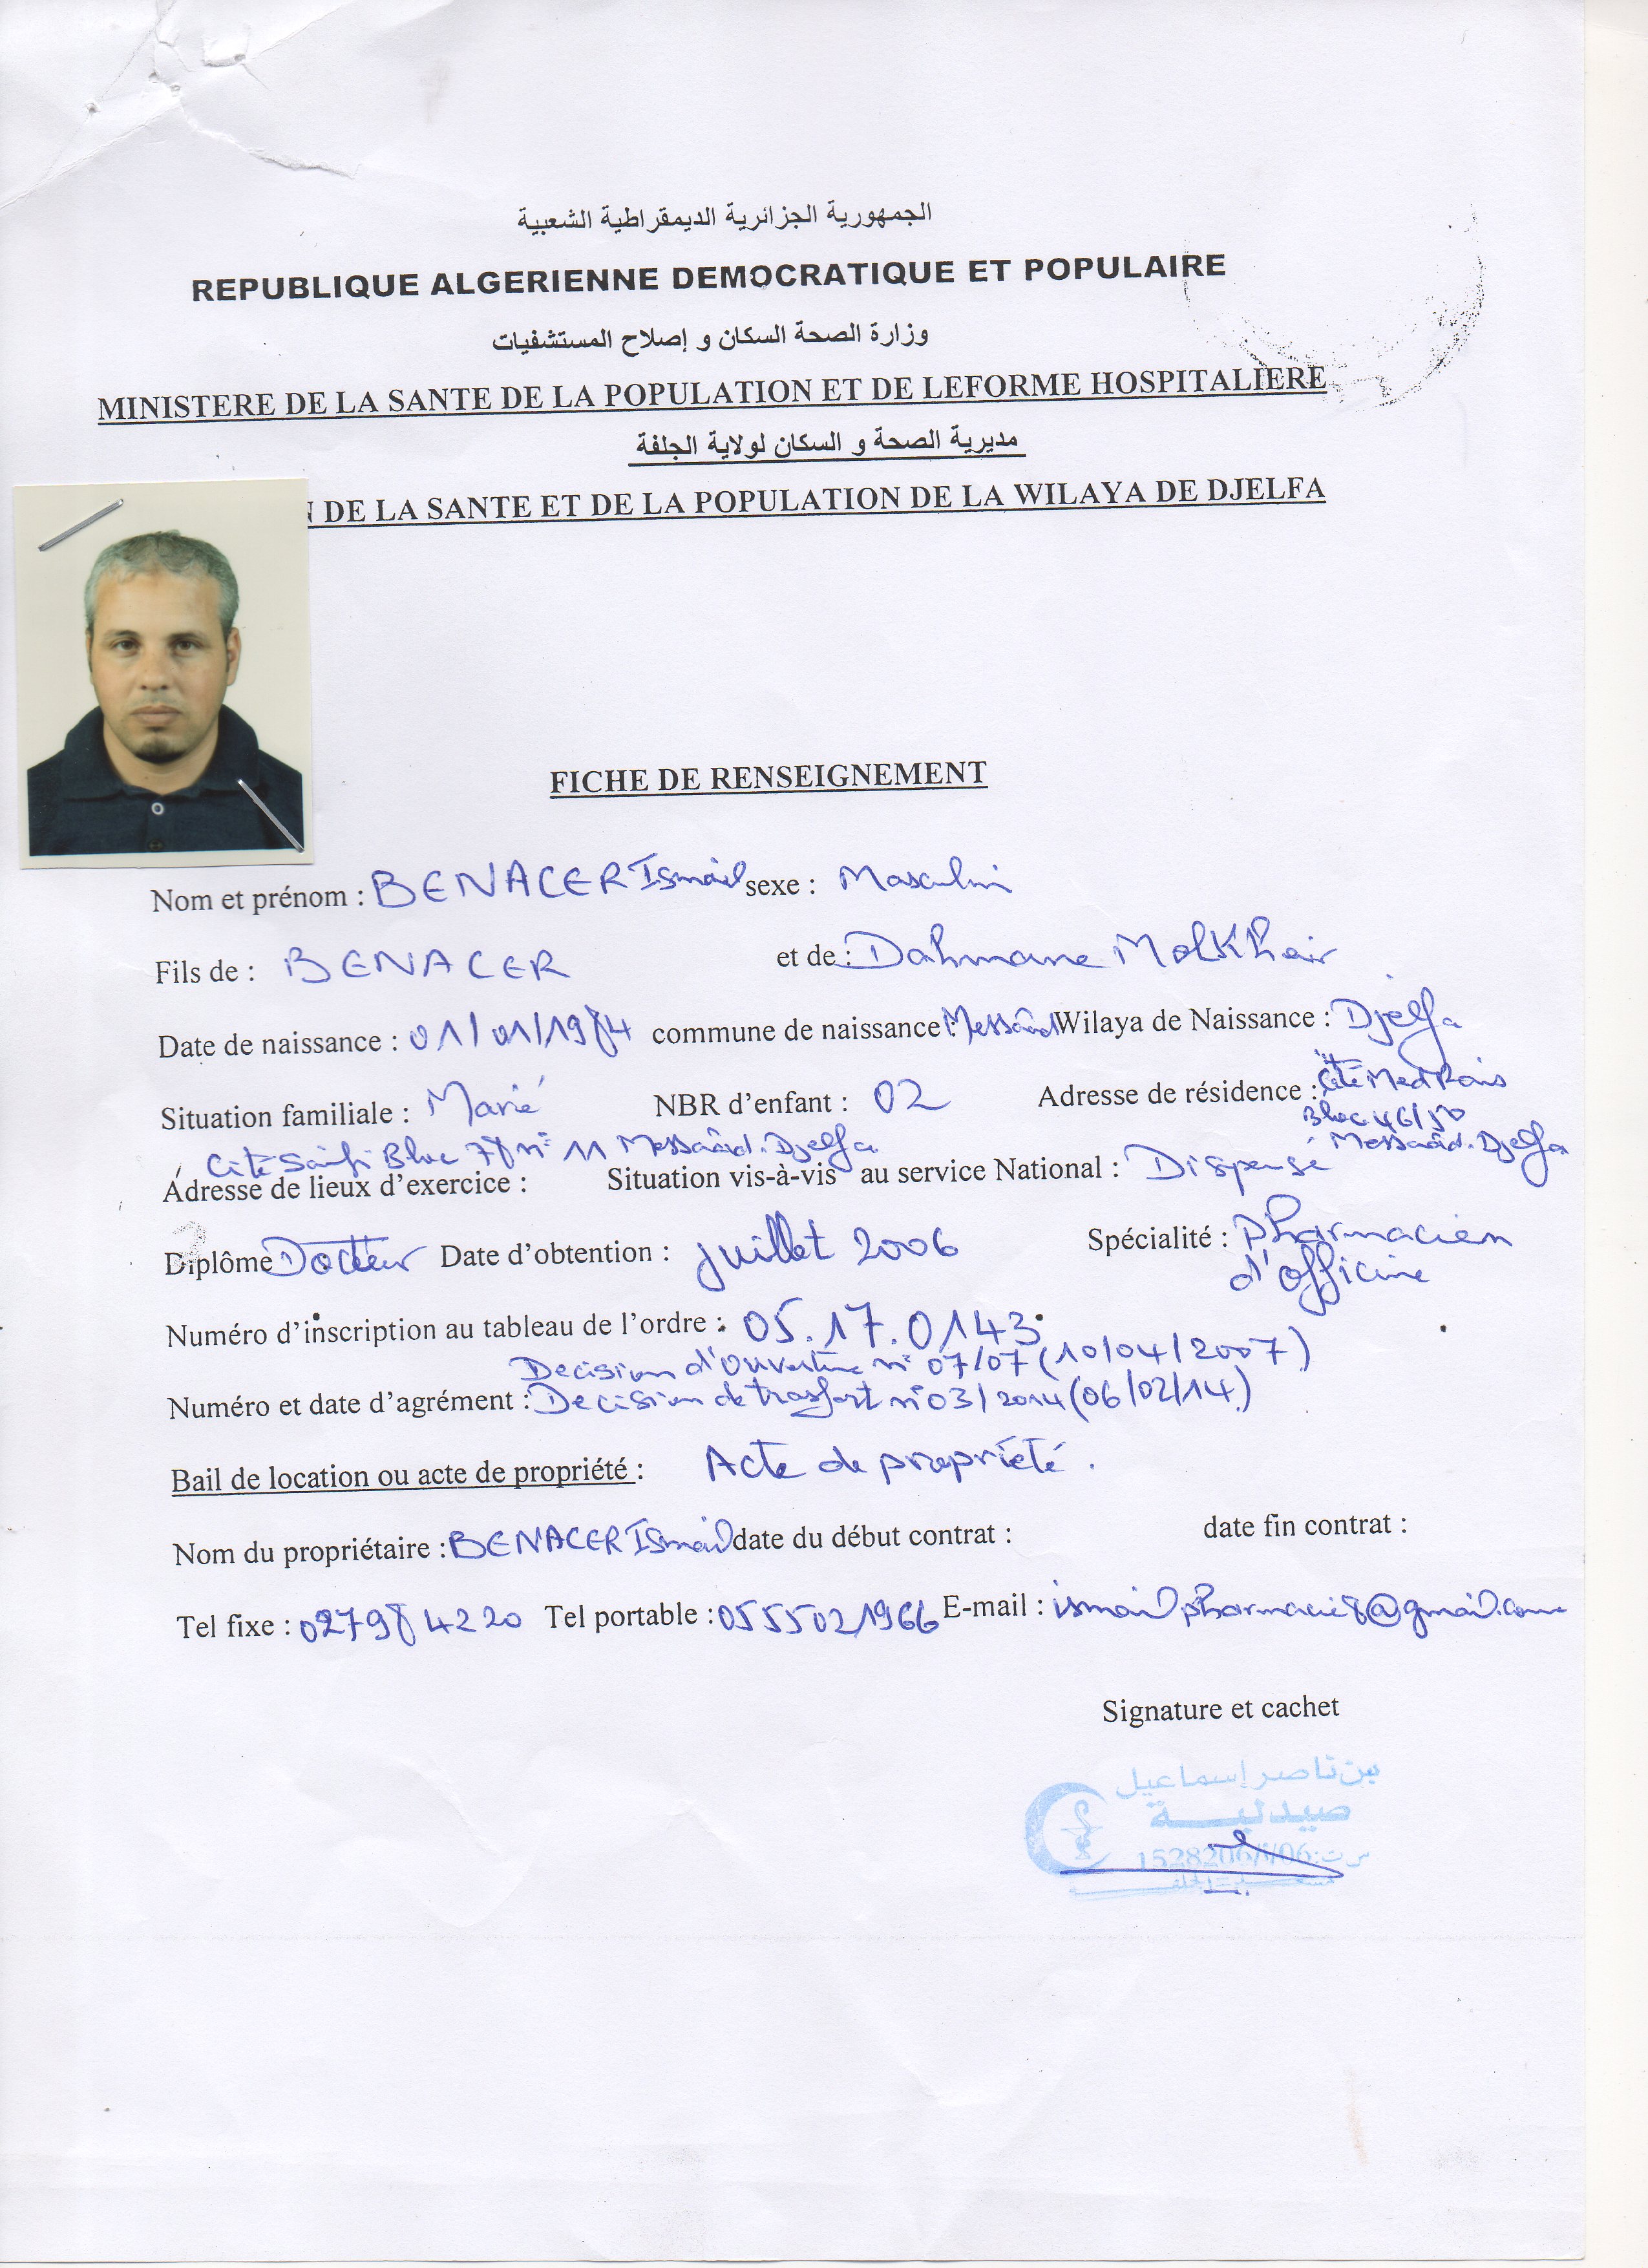 الجمهورية الجزائرية الديمقراطية الشعبية
REPUBLIQUE ALGERIENNE DEMOCRATIQUE ET POPULAIRE
وزارة الصحة السكان و إصلاح المستشفيات
MINISTERE DE LA SANTE DE LA POPULATION ET DE LEFORME HOSPITALIERE
مديرية الصحة و السكان لولاية الجلفة
N DE LA SANTE ET DE LA POPULATION DE LA WILAYA DE DJELFA
FICHE DE RENSEIGNEMENT
Nom et prénom : BENACER Ismail sexe : Masculin
Fils de : BENACER et de : Dahmane Molkheir
Date de naissance : 01/01/1984 commune de naissance : Messâad Wilaya de Naissance : Djelfa
Situation familiale : Marié NBR d'enfant : 02 Adresse de résidence : Cité Med Rais
Bloc 46/50
Messâad. Djelfa
Cité Saifi Bloc 78 n° 11 Messâad. Djelfa
Adresse de lieux d'exercice : Situation vis-à-vis au service National : Dispensé
Diplôme Docteur Date d'obtention : juillet 2006 Spécialité : pharmacien
d'officine
Numéro d'inscription au tableau de l'ordre : 05.17.0143
Decision d'ouverture n° 07/07 (10/04/2007)
Numéro et date d'agrément : Decision de trasfert n° 03/2014 (06/02/14)
Bail de location ou acte de propriété : Acte de propriété.
Nom du propriétaire : BENACER Ismail date du début contrat : date fin contrat :
Tel fixe : 027984220 Tel portable : 0555021966 E-mail : ismailpharmacie8@gmail.com
Signature et cachet
بن ناصر إسماعيل
صيدلية